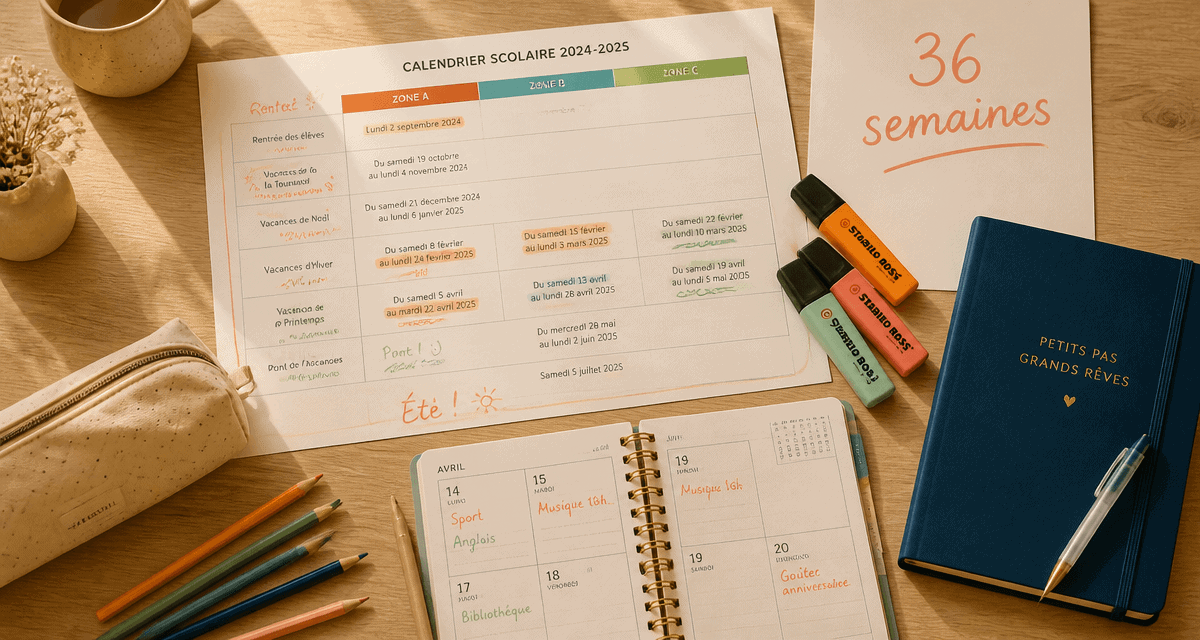 CALENDRIER SCOLAIRE 2024-2025
ZONE A
ZONE B
ZONE C
Rentrée des élèves
Lundi 2 septembre 2024
Vacances de la
la
Du samedi 19 octobre
au lundi 4 novembre 2024
Vacances de Noël
Du samedi 21 décembre 2024
au lundi 6 janvier 2025
Vacances d'Hiver
Du samedi 8 février
au lundi 24 février 2025
Du samedi 15 février
au lundi 3 mars 2025
Du samedi 22 février
au lundi 10 mars 2025
Printemps
Du samedi 5 avril
au mardi 22 avril 2025
Du samedi 13 avril
au lundi 28 avril 2025
Du samedi 19 avril
au lundi 5 mai 2025
Pont de
Pont !
Du mercredi 28 mai
au lundi 2 juin 2025
Samedi 5 juillet 2025
Été !
36
semaines
STABILO BOSS
STABILO BOSS
STABILO BOSS
PETITS PAS
GRANDS RÊVES
AVRIL
14
Sport
Anglois
15
Musique 16h
17
Bibliothéque
18
19
Musique 16h
19
20
Goûter
anniversaire